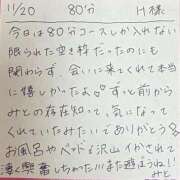 11/20 80分 H様
今日は80分コースしか入れない
限られた空き枠だったのにも
関わらず、会いに来てくれて本当
に嬉しかったよ♡ずっと前から
みとの存在知って、気になって
くれていたみたいでありがとう
お風呂やベッドも沢山イカされて
凄く興奮しちゃった!!!また遊ぼうね!!
みと